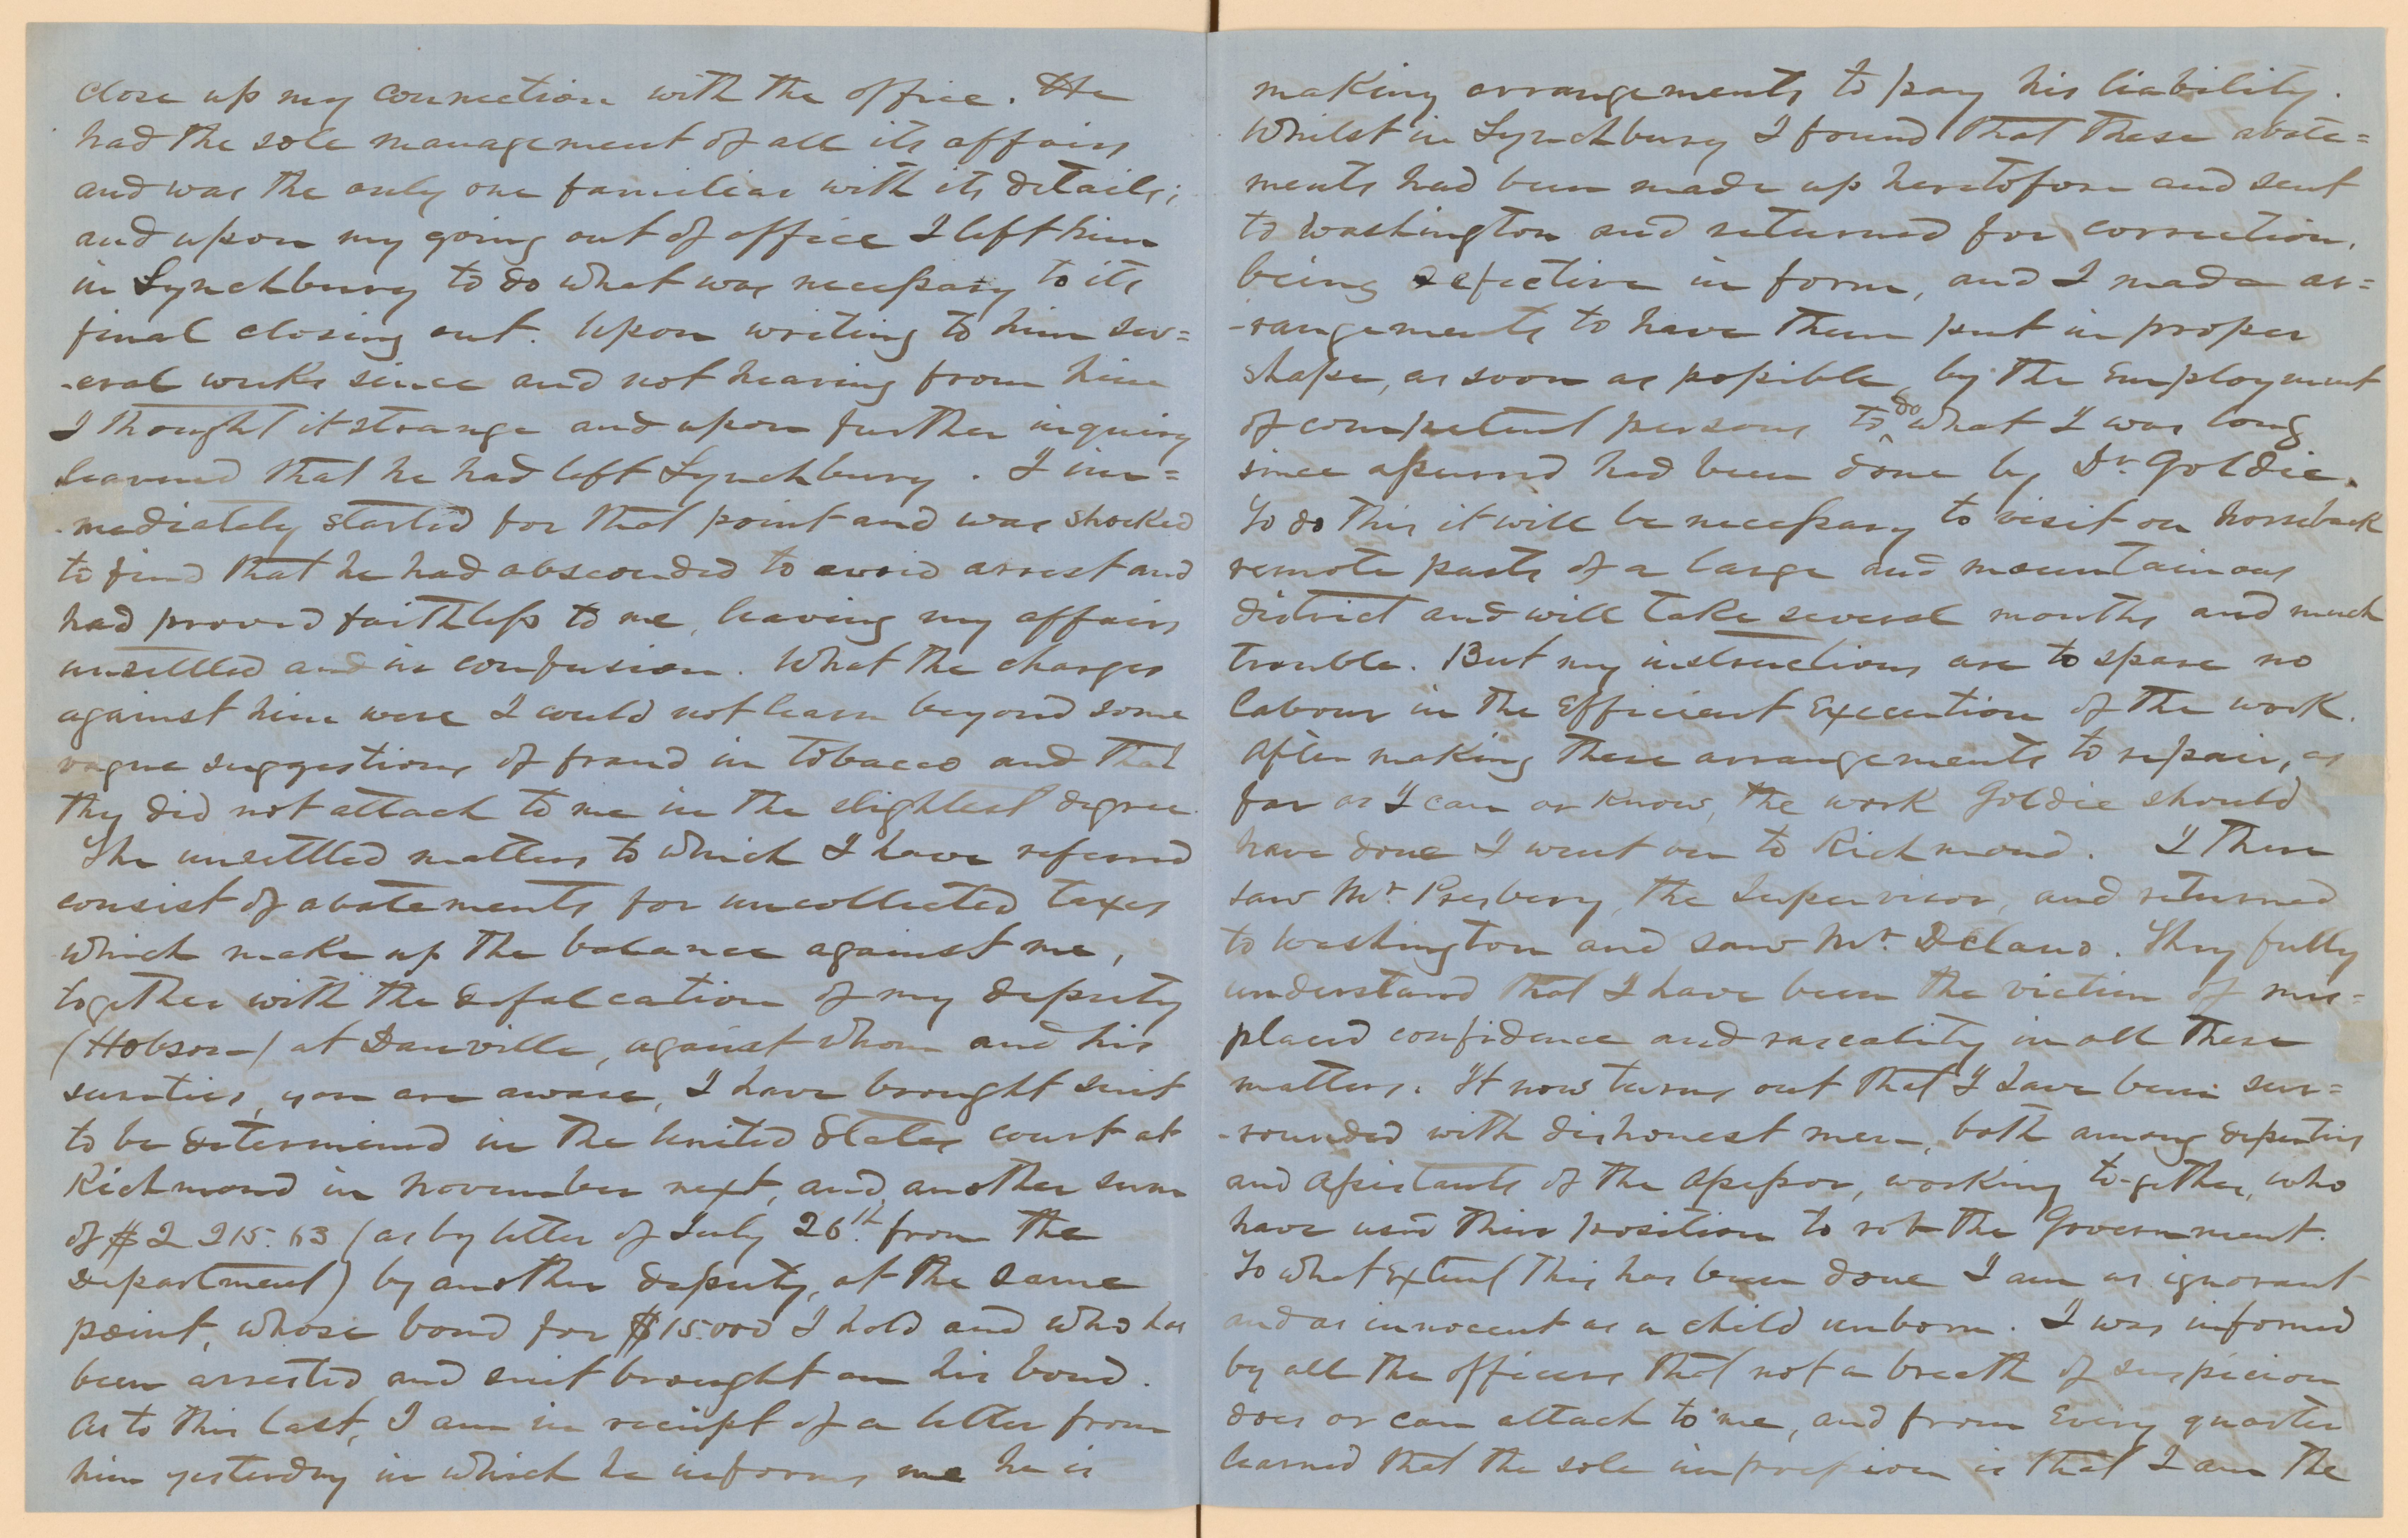 close up my connection with the office. He
had the sole management of all its affairs
and was the only one familiar with its details;
and upon my going out of office I left him
in Lynchburg to do what was necessary to its
final closing out. Upon writing to him sev=
-eral weeks since and not hearing from him
I thought it strange and upon further inquiry
learned that he had left Lynchburg. I im=
-mediately started for that point and was shocked
to find that he had absconded to avoid arrest and
had proved faithless to me, leaving my affairs
unsettled and in confusion. What the charges
against him were I could not learn beyond some
vague suggestions of fraud in tobacco and that
they did not attach to me in the slightest degree.
The unsettled matters to which I have referred
consist of abatements for uncollected taxes
which make up the balance against me,
together with the defalcation of my deputy
(Hobson) at Danville, against whom and his
sureties, you are aware, I have brought suit
to be determined in the United States court at
Richmond in November next, and another sum
of $2 215.63 (as by letter of July 26th. from the
Department) by another deputy, at the same
point, whose bond for $15.000 I hold and who has
been arrested and suit brought on his bond.
As to this last, I am in receipt of a letter from
him yesterday in which he informs me he is
making arrangements to pay his liability.
Whilst in Lynchburg I found that these abate=
ments had been made up heretofore and sent
to Washington and returned for correction,
being defective in form, and I made ar=
-rangements to have them put in proper
shape, as soon as possible, by the Employment
of competent persons to do what I was long
since assured had been done by Dr. Goldie.
To do this it will be necessary to visit on horseback
remote parts of a large and mountainous
district and will take several months and much
trouble. But my instructions are to spare no
labour in the Efficient Execution of the work.
After making these arrangements to repair, as
far as I can or know, the work Goldie should
have done I went on to Richmond. I there
saw Mr Presbury, the Supervisor, and returned
to Washington and saw Mr. Delano. They fully
understand that I have been the victim of mis=
placed confidence and rascality in all these
matters. It now turns out that I have been sur=
-rounded with dishonest men, both among deputies
and assistants of the assessor, working to-gether, who
have used their position to rob the Government.
To what Extent this has been done I am as ignorant
and as innocent as a child unborn. I was informed
by all the officers that not a breath of suspicion
does or can attach to me, and from Every quarter
learned that the sole impression is that I am the